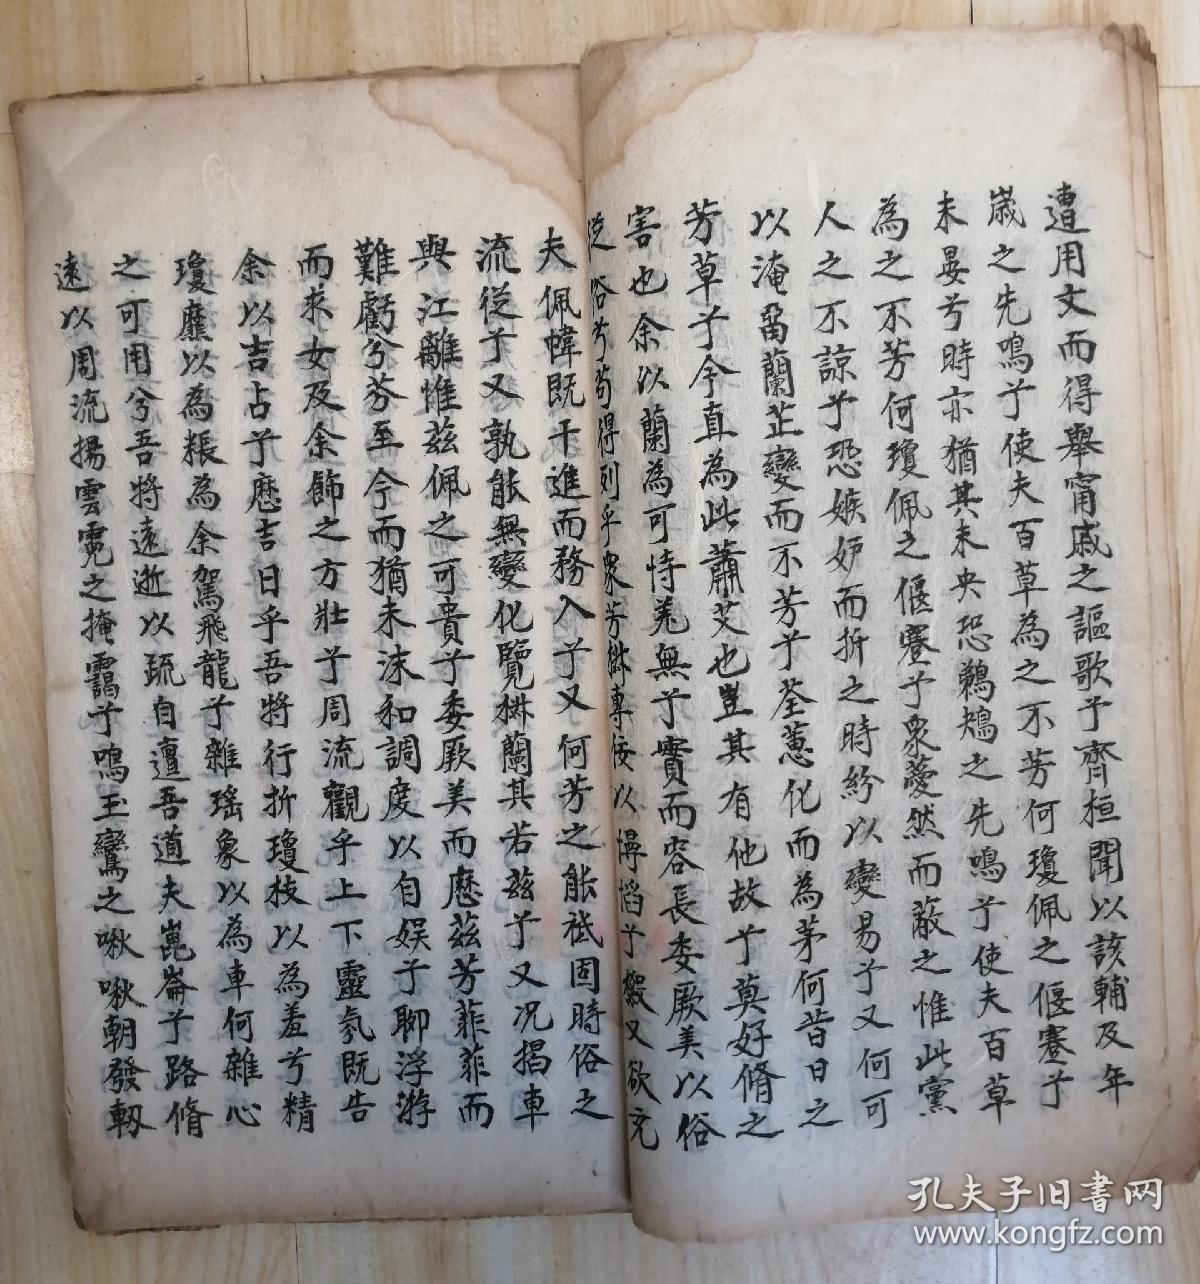 遭用文而得舉甯戚之謳歌兮齊桓聞以該輔及年
歲之先鳴兮使夫百草為之不芳何瓊佩之偃蹇兮
未晏兮時亦猶其未央恐鵜鴂之先鳴兮使夫百草
為之不芳何瓊佩之偃蹇兮眾薆然而蔽之惟此黨
人之不諒兮恐嫉妒而折之時紛以變易兮又何可
以淹留蘭芷變而不芳兮荃蕙化而為茅何昔日之
芳草兮今直為此蕭艾也豈其有他故兮莫好脩之
害也余以蘭為可恃羌無兮實而容長委厥美以俗
從俗兮苟得列乎眾芳椒專佞以慢慆兮樧又欲充
夫佩幃既干進而務入兮又何芳之能祗固時俗之
流從兮又孰能無變化覽椒蘭其若茲兮又况揭車
與江離惟茲佩之可貴兮委厥美而歷茲芳菲菲而
難虧兮芬至今而猶未沫和調度以自娛兮聊浮游
而求女及余飾之方壯兮周流觀乎上下靈氛既告
余以吉占兮歷吉日乎吾將行折瓊枝以為羞兮精
瓊靡以為粻為余駕飛龍兮雜瑤象以為車何雜心
之可用兮吾將遠逝以疏自邅吾道夫崑崙兮路脩
遠以周流揚雲霓之掩靄兮鳴玉鸞之啾啾朝發軔
孔夫子旧书网
www.kongfz.com